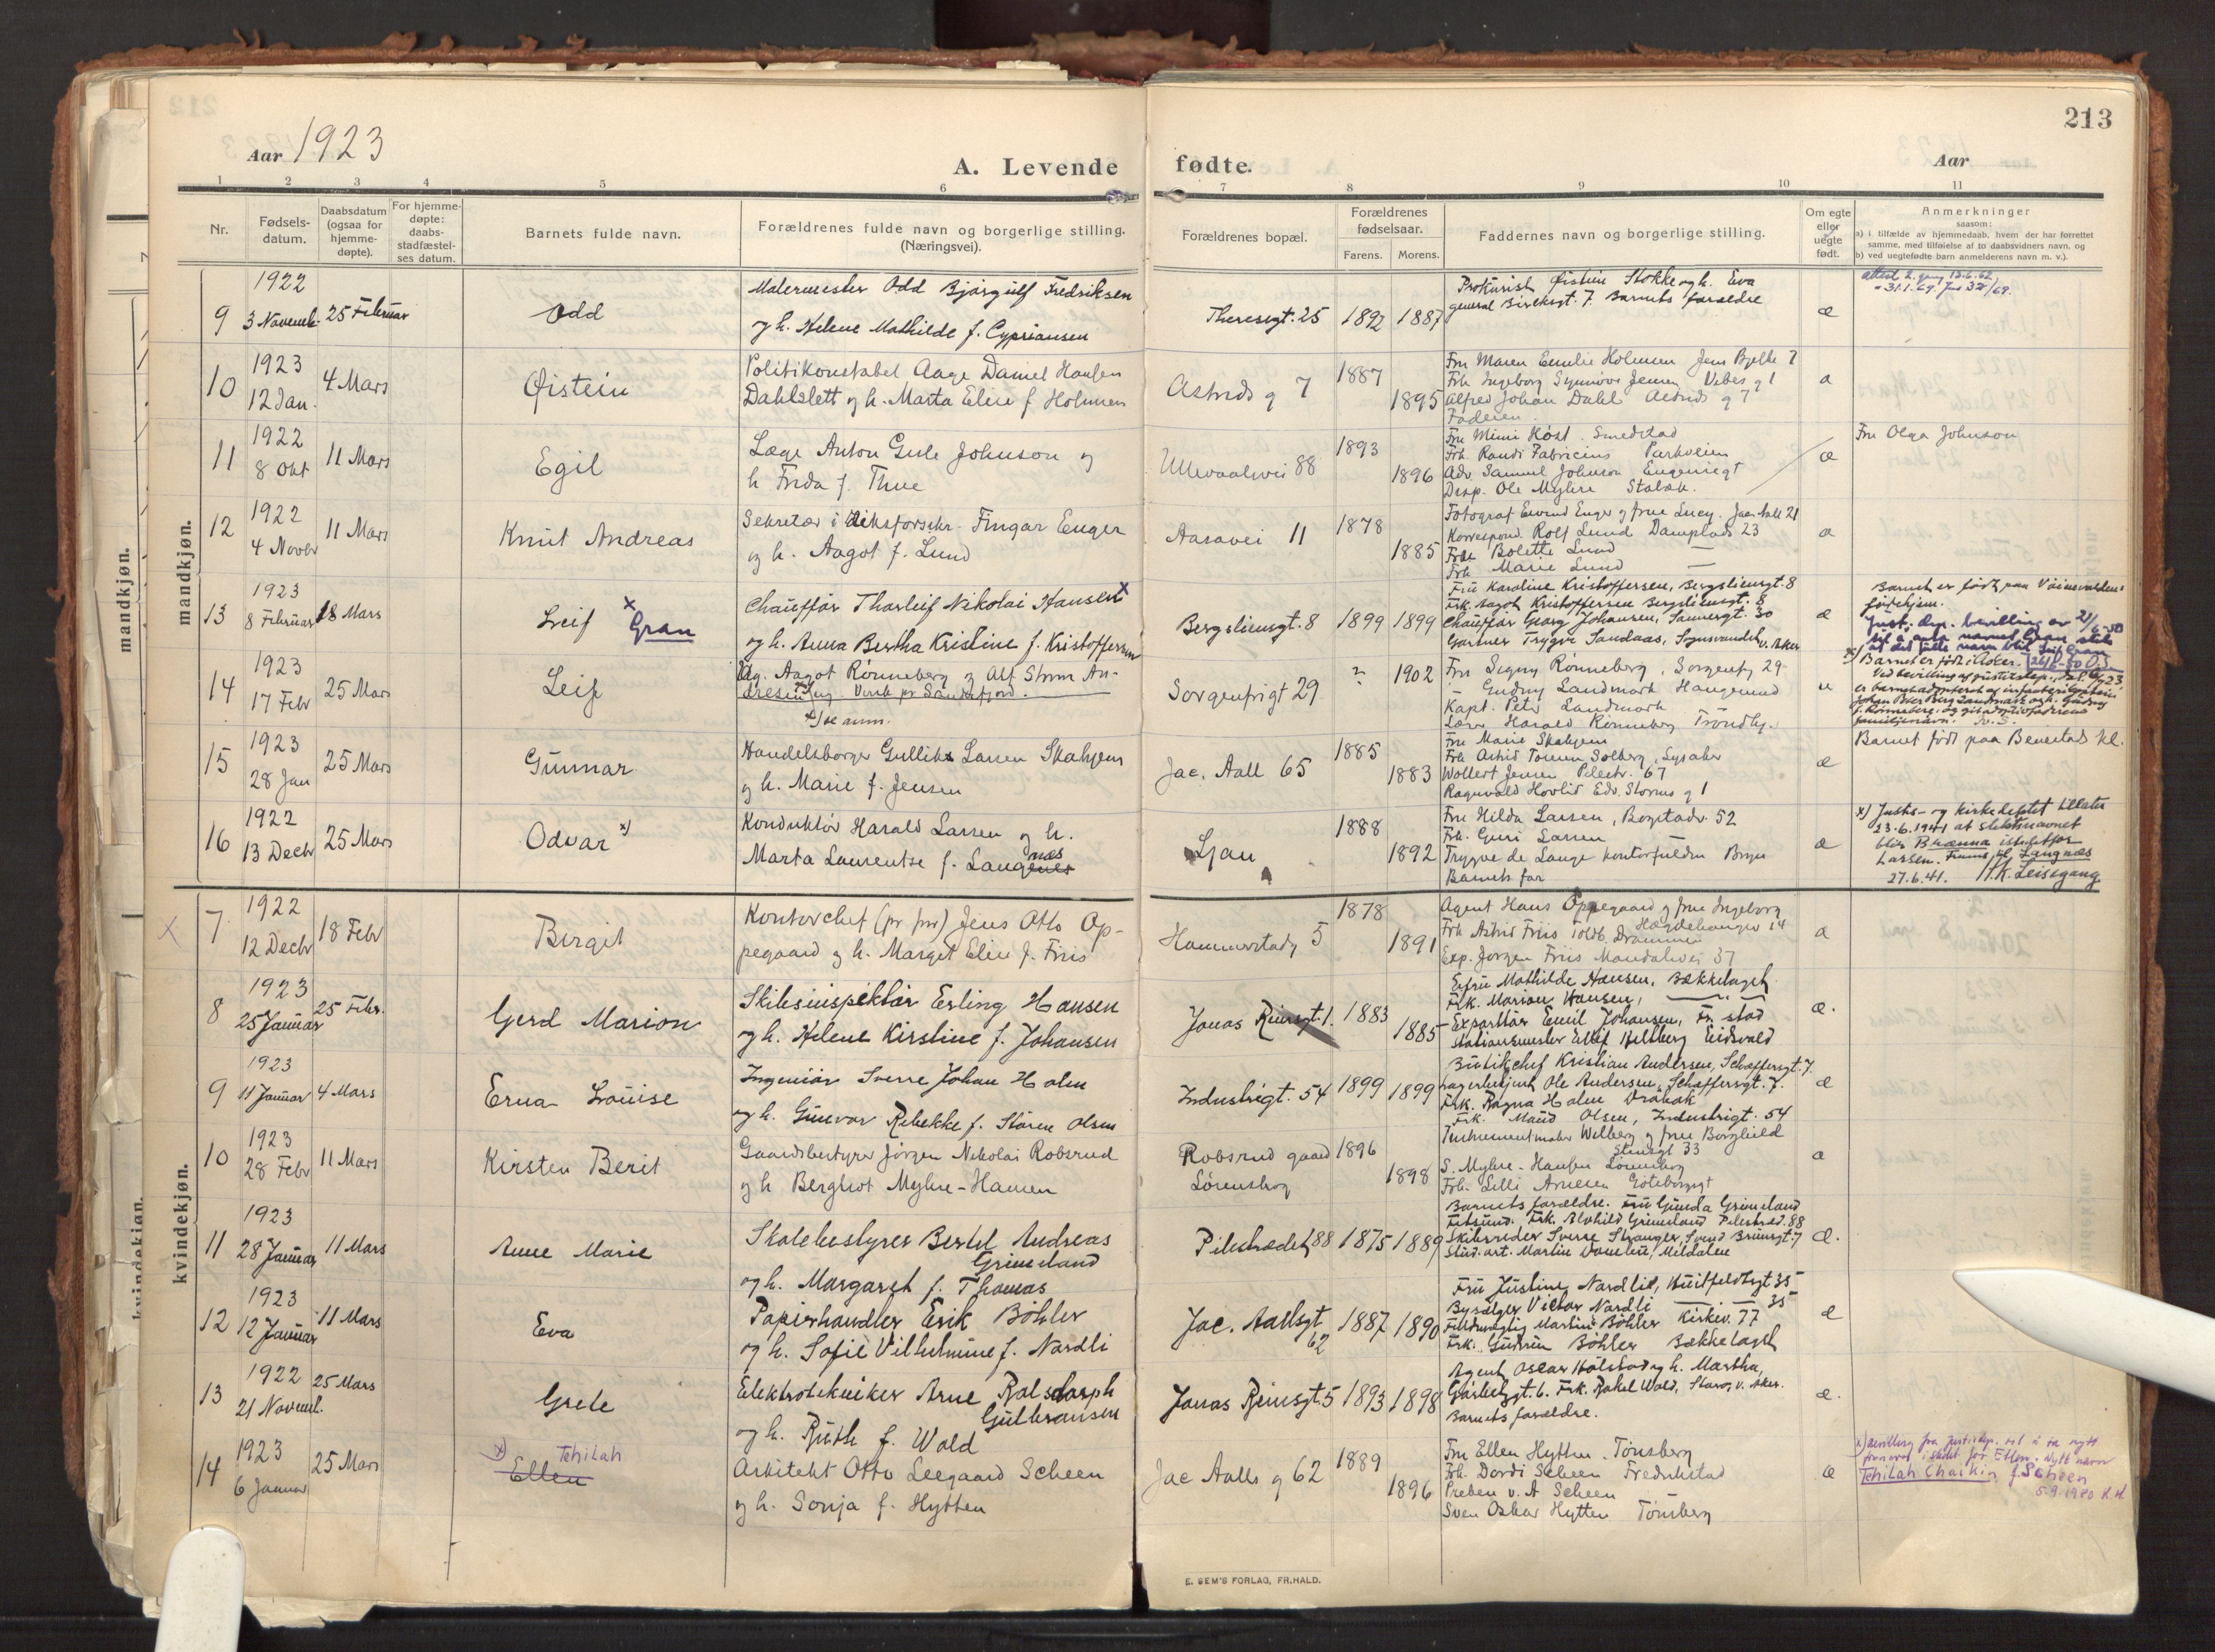 213
Aar 1923
A. Levende fødte.
Aar
1 2 3 4 5 6 7 8 9 10 11
Nr.
Fødsels-
datum.
Daabsdatum
(ogsaa for
hjemme-
døpte).
For hjemme-
døpte:
daabs-
stadfæstel-
ses datum.
Barnets fulde navn.
Forældrenes fulde navn og borgerlige stilling.
(Næringsvei).
Forældrenes bopæl.
Forældrenes
fødselsaar.
Farens. Morens.
Faddernes navn og borgerlige stilling.
Om egte
eller
uegte
født.
Anmerkninger
saasom:
a) i tilfælde av hjemmedaab, hvem der har forrettet
samme, med tilføielse af to daabsvidners navn, og
b) ved uegtefødte barn anmelderens navn m. v.).
mandkjøn.
mandkjøn.
9
1922
3 Novemb.
25 Februar
Odd
Malermester Odd Bjørgulf Fredriksen
og h. Helene Mathilde f. Cypriansen
Theresegt. 25
1892 1887
Prokurist Øistein Stokke og h. Eva
general Birchsgt. 7. Barnets forældre
æ
10
1923
12 Jan.
4 Mars
Øistein
Politikonstabel Aage Daniel Hansen
Dahlslett og h. Marta Elise f Holmen
Astrids g 7
1887
1895
Fru Maren Emelie Holmen Jens Bjelke 7
Frk Ingeborg Synnöve Jensen Vibes g 1
Alfred Johan Dahl Astrids g 7
Faderen
æ
11
1922
8 Okt
11 Mars
Egil
Læge Anton Gule Johnson og
h Frida f. Thue
Ullevaalsvei 88
1893
1896
Fru Mimi Høst. Smedstad
Frk Randi Fabricius Parkveien
Adv. Samuel Johnson Eugeniegt
Disp. Ole Myhre Stabæk.
æ
Fru Olga Johnson
12
1922
4 Novbr
11 Mars
Knut Andreas
Sekretær i Riksforsikr. Fingar Enger
og h. Aagot f. Lund
Aasavei 11
1878
1885
Fotograf Eivind Enger og frue Lucy. Jac Aall 21
Korrespond. Rolf Lund Damplads 23
Frk Bolette Lund —
Frk. Marie Lund —
æ
13
1923
8 Februar
18 Mars
Leif x Gran
Chauffør Thorleif Nikolai Hansen x
og h. Anna Bertha Kristine f. Kristoffersen
Bergsliensgt. 8
1899 1899
Fru Karoline Kristoffersen, Bergsliensgt. 8
Frk. Aagot Kristoffersen Bergsliensgt. 8
Chauffør Georg Johansen, Sannergt. 30
Gartner Trygve Sandaas, Sognsvandet v. Aker
æ
Barnet er født paa
fødehjem.
Just. dep. bevilling av 21/6-50
til å anta navnet Gran slik
at det fulle navn blir Leif Gran
14
1923
17 Febr
25 Mars
Leif
Ug. Aagot Rønneberg og Alf Strøm An-
dresen
x) se anm.
Sorgenfrigt 29
1902
Fru Signy Rønneberg, Sorgenfrig 29
— Gudny Landmark Haugesund
Kapt. Peter Landmark
Lærer Harald Rønneberg Trondhj.
u
x) Barnet er født i Asker.
Ved bevilling af justitsdep.
15
1923
28 Jan
25 Mars
Gunnar
Handelsborger Gullik Larsen Skahjem
og h. Marie f. Jensen
Jac. Aall 65
1885
1883
Fru Marie Skahjem
Frk Astrid Solberg, Lysaker
Wollert Jensen Pilestr. 67
Ragnvald Hovlid Edv. Storms g 1
æ
Barnet født paa
16
1922
13 Decbr
25 Mars
Odvar x)
Konduktør Harald Larsen og h.
Marta Laurentse f. Langenes
næs
Ljan
1888
1892
Fru Hilda Larsen, Bogstadv. 52
Frk. Guri Larsen
Trygve de Lange kontorfuldm Bryn
Barnets far
æ
x) Justis- og kirkedeptet tillater
23.6.1941 at slektsnavnet
blir Brænna istedetfor
Larsen.
27.6.41. H.K. Leisegang
kvindekjøn.
kvindekjøn.
X
7
1922
12 Decbr
18 Febr
Birgit
Kontorchef Jens Otto Op-
pegaard og h. Margit Elise f. Friis
Hammerstadg 5
1878
1891
Agent Hans Oppegaard og frue Ingeborg
Frk Astrid Friis Drammen
Exp. Jørgen Friis Mandalsvei 37
æ
8
1923
25 Januar
25 Febr.
Gerd Marion
Skibsinspektør Erling Hansen
og h. Helene Kirstine f. Johansen
Jonas Reinsgt. 1.
1883
1885
Fru Mathilde Hansen, Bækkelaget
Frk. Marion Hansen,
Exportør Emil Johansen, Fr. stad
Stationsmester Hellberg Eidsvold
æ.
9
1923
11 Januar
4 Mars
Erna Louise
Ingeniør Sverre Johan Holm
og h. Gunvor Rebekke f. Støren Olsen
Industrigt. 54
1899 1899
Butikchef Kristian Andersen, Schæffersgt. 7.
Lagerbetjent Ole Andersen, Schæffersgt. 7.
Frk. Ragna Holm Drøbak
Frk. Maud Olsen, Industrigt. 54
æ
10
1923
28 Febr
11 Mars
Kirsten Berit
Gaardsbestyrer Jørgen Nikolai Robsrud
og h Bergliot Myhre-Hansen
Robsrud gaard
Lørenskog
1896
1898
Instrumentmaker Welberg og frue Borghild
Stensgt 33
S. Myhre-Hansen Lørenskog
Frk. Lilli Arnesen Göteborggt
æ
11
1923
28 Januar
11 Mars
Anne Marie
Skolebestyrer Bertel Andreas
Grimeland
og h. Margaret f. Thomas
Pilestrædet 88
1875 1889
Barnets forældre. Fru Gunda Grimeland
Fetsund. Frk. Alvhild Grimeland Pilestræd. 88
Skibsreder Sverre Stranger, Svend Brunsgt. 7
Stud. art. Martin
æ.
12
1923
12 Januar
11 Mars
Eva
Papirhandler Erik Böhler
og h. Sofie Vilhelmine f. Nordli
Jac. Aallsgt
62
1887 1890
Fru Justine Nordlie, Huitfeldtsgt 35
Bysælger Victor Nordli — 35
Martin Böhler Kirkev. 77
Frk. Gudrun Böhler Bækkelaget
æ
13
1922
21 Novemb.
25 Mars
Grete
Elektrotekniker Arne Rolsdorph
Gulbransen
og h. Ruth f. Wold
Jonas Reinsgt. 5
1893 1898
Agent Oscar Holstad og h. Martha,
Gørbitzgt. 6. Frk. Rakel Wold, Storo, v. Aker.
Barnets forældre.
æ.
14
1923
6 Januar
25 Mars
x) Tehilah
Ellen
Arkitekt Otto Leegaard Scheen
og h. Sonja f. Hytten
Jac Aalls g 62
1889
1896
Fru Ellen Hytten. Tönsberg
Frk. Dordi Scheen Fredrikstad
Preben v. A Scheen
Sven Oskar Hytten Tönsberg
æ
x) Bevilling fra Justisdep. til å ta nytt
fornavn istedet for Ellen. Nytt navn
Tehilah Chaikin f. Scheen
5.9.1980 K.H.
E. SEM'S FORLAG, FR.HALD.